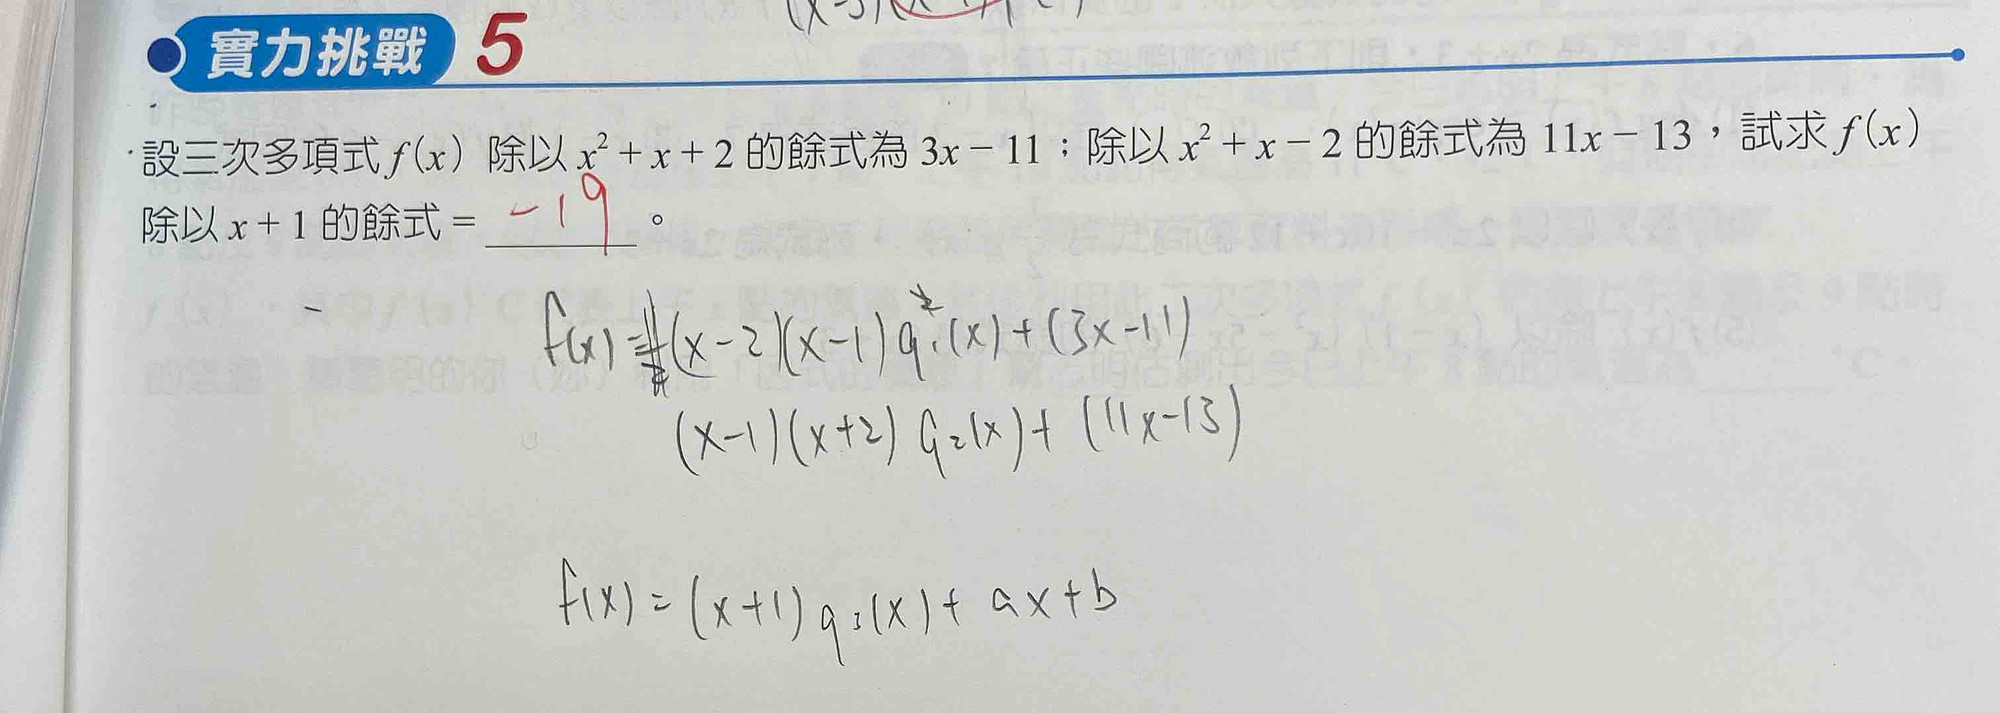 實力挑戰 5
設三次多項式 f(x) 除以 x² + x + 2 的餘式為 3x − 11；除以 x² + x − 2 的餘式為 11x − 13，試求 f(x)
除以 x + 1 的餘式 = -19 。
f(x) = (x-2)(x-1) q₁(x) + (3x-11)
(x-1)(x+2) q₂(x) + (11x-13)
f(x) = (x+1) q₃(x) + ax+b